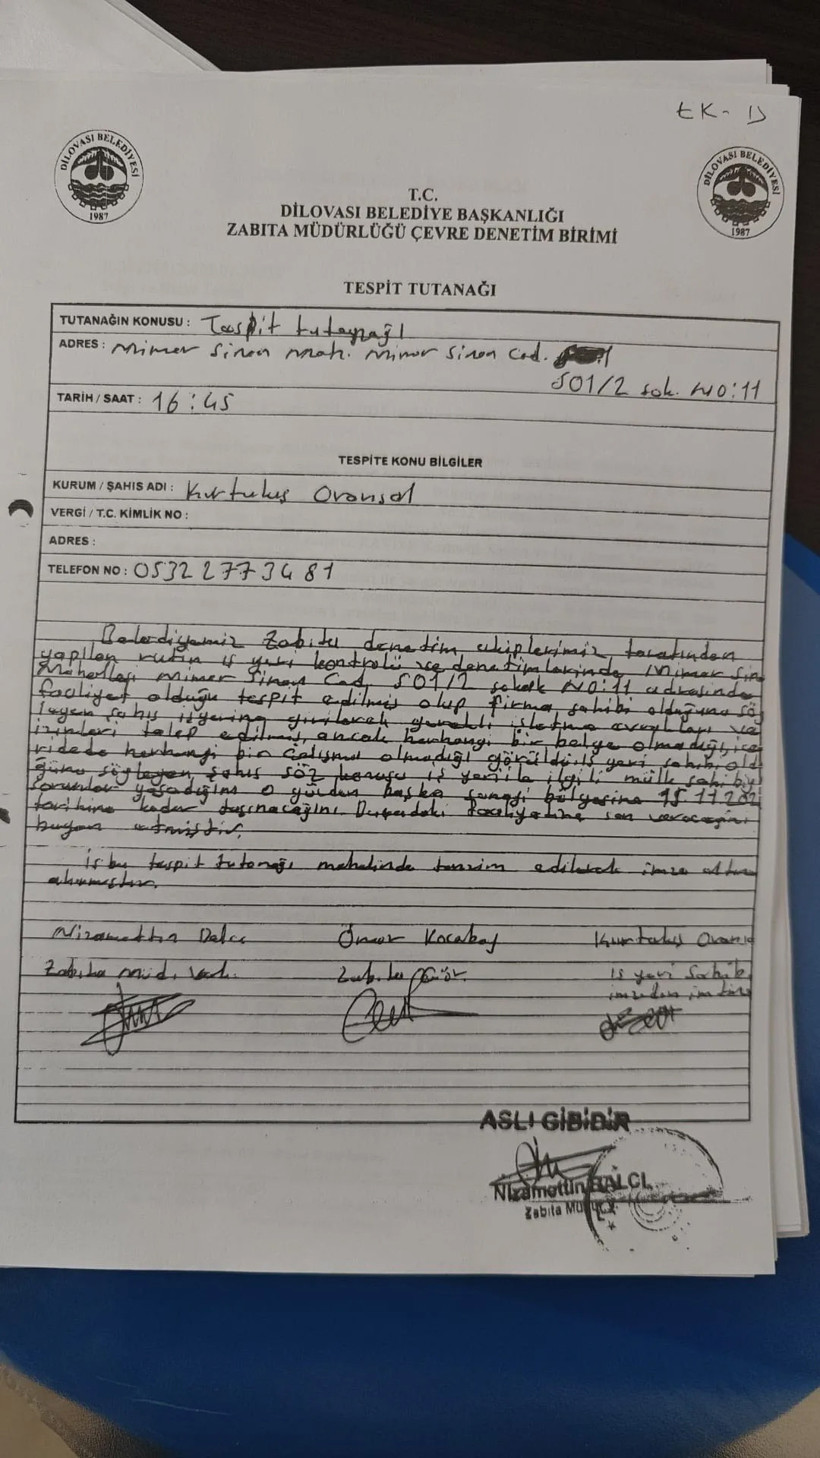 EK-D
DİLOVASI BELEDİYESİ
1987
DİLOVASI BELEDİYESİ
1987
T.C.
DİLOVASI BELEDİYE BAŞKANLIĞI
ZABITA MÜDÜRLÜĞÜ ÇEVRE DENETİM BİRİMİ
TESPİT TUTANAĞI
TUTANAĞIN KONUSU : Tespit tutanağı
ADRES : Mimar Sinan Mah. Mimar Sinan Cad.
501/2 sok. NO:11
TARİH / SAAT : 16:45
TESPİTE KONU BİLGİLER
KURUM / ŞAHIS ADI : Kurtuluş Oransal
VERGİ / T.C. KİMLİK NO :
ADRES :
TELEFON NO : 0532 277 34 81
Belediyemiz Zabıta denetim ekiplerimiz tarafından
yapılan rutin iş yeri kontrolü ve denetimlerinde Mimar Sin
Mahallesi Mimar Sinan Cad. 501/2 sokak NO:11 adresinde
faaliyet olduğu tespit edilmiş olup firma sahibi olduğunu söy
leyen şahıs işyerine girilerek gerekli işletme evrakları ve
izinleri talep edilmiş, ancak herhangi bir belge olmadığı, içe
ride de herhangi bir çalışma olmadığı görüldü. İş yeri sahibi old
ğunu söyleyen şahıs söz konusu iş yeri ile ilgili mülk sahibi
sorunlar yaşadığını o yüzden başka sanayi bölgesine 15.11.202
tarihine kadar taşınacağını. Buradaki faaliyetine son vereceğini
beyan etmiştir.
İş bu tespit tutanağı mahalinde tanzim edilerek imza altına
alınmıştır.
Nizamettin Balcı Ömer Kocabaş Kurtuluş Orans
Zabıta Müd. Vek. Zabıta Gör. İş yeri Sahibi
imzadan imtina
ASLI GİBİDİR
Nizamettin BALCI
Zabıta Müdür V.